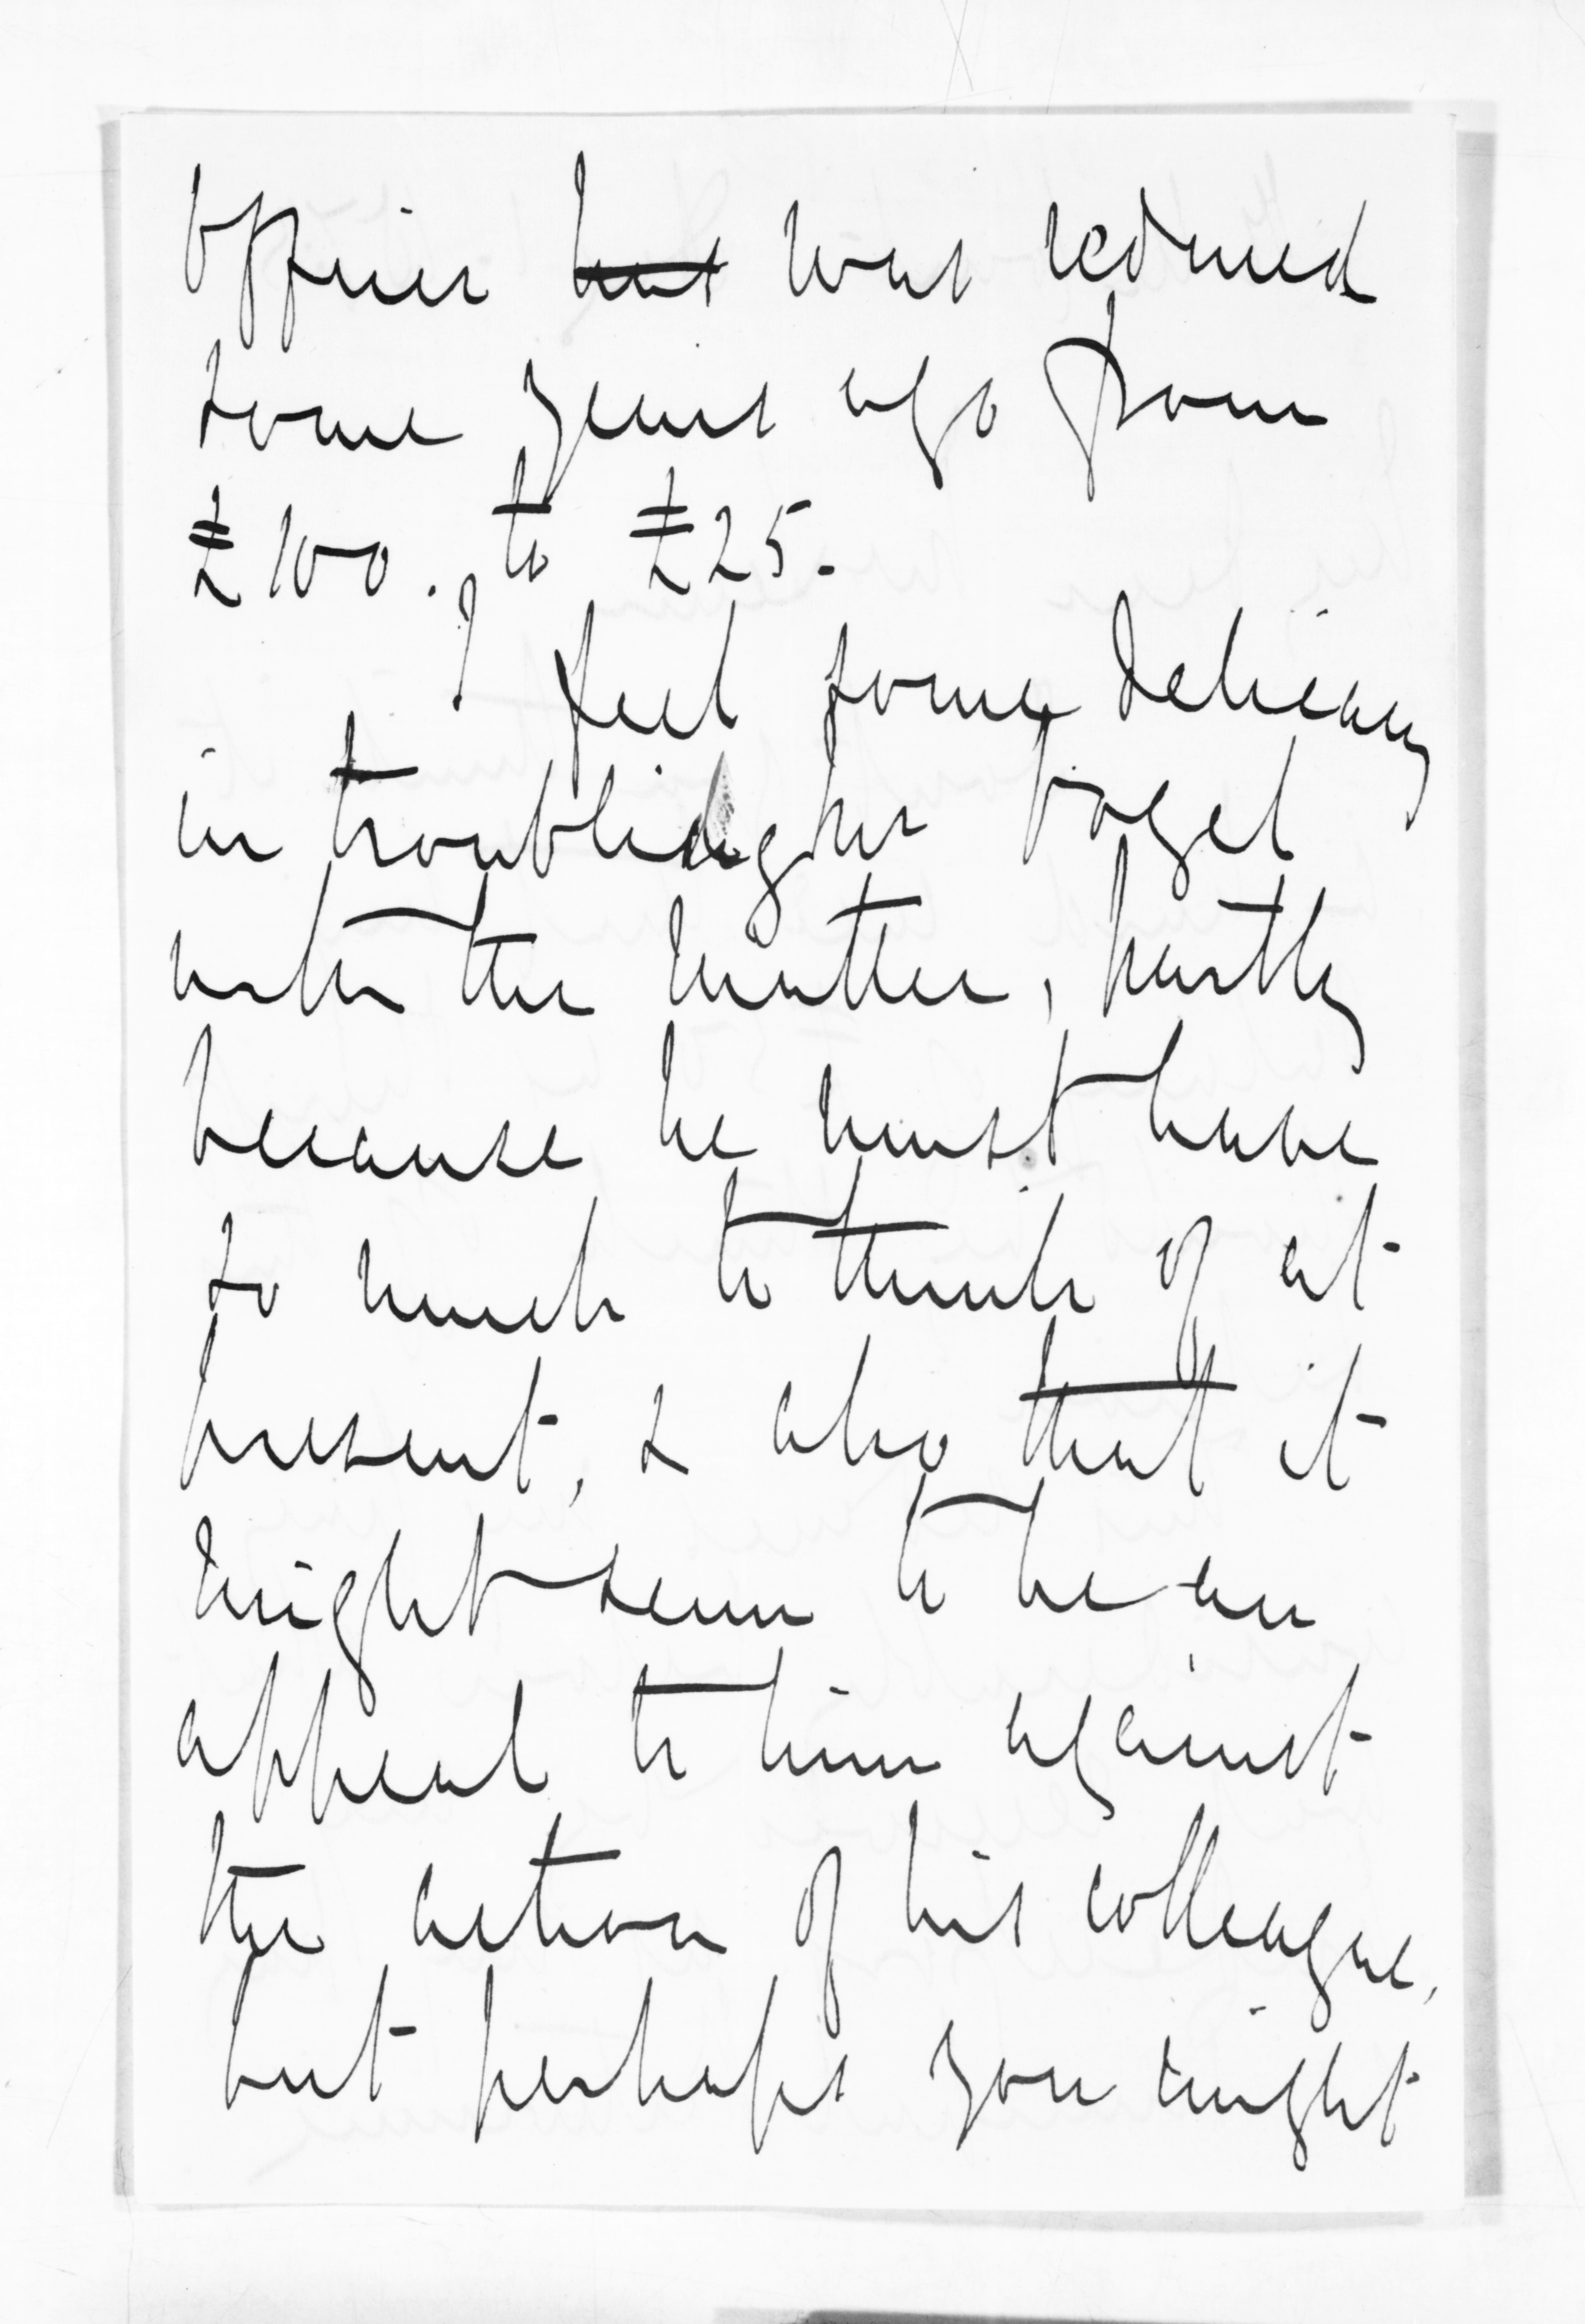 Officer has was reduced
some years ago from
£100. to £25.
I feel some delicacy
in troubling Mr Vogel
with the matter, partly
because he must have
so much to think of at
present, & also that it
might seem to be an
appeal to him against
the action of his colleague,
but perhaps you might